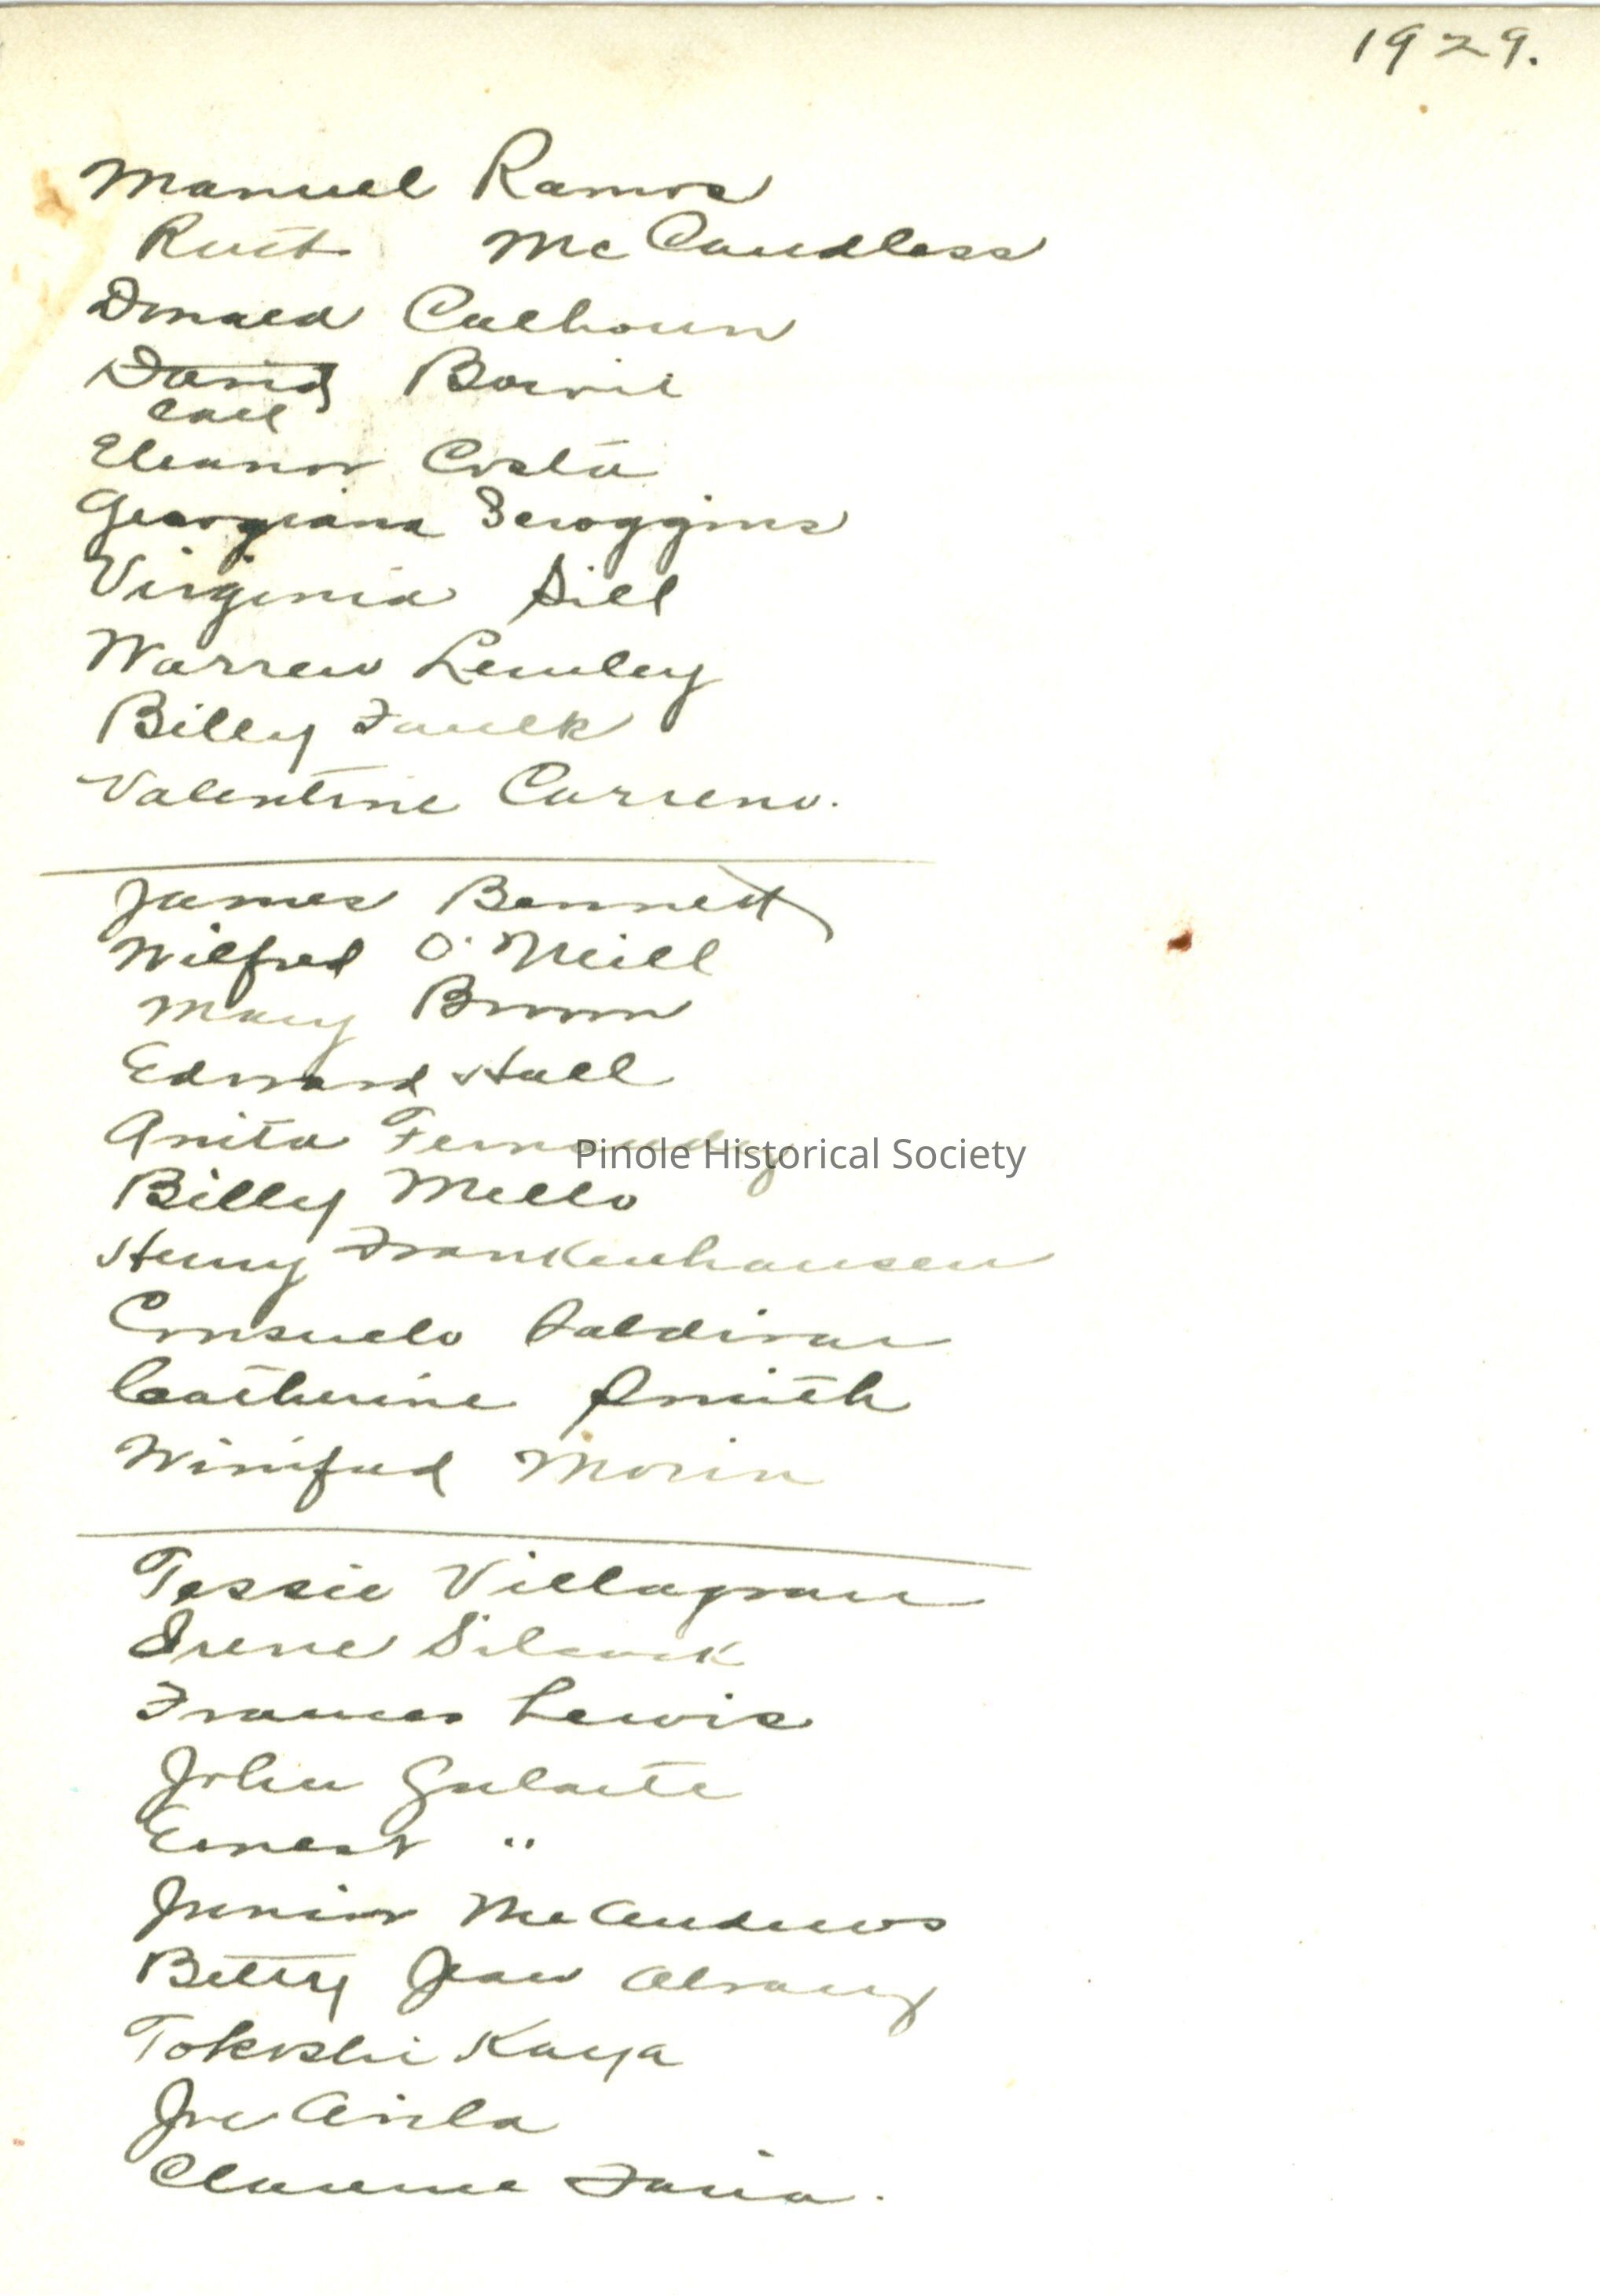 1929.
Manuel Ramos
Ruth McCandless
Donald Calhoun
David
Carl
Eleanor Costa
Georgiana Scroggins
Virginia Sill
Warren Lemley
Billy Faulk
Valentine Carreno.
James Bennett
Wilfred O'Neill
Mary Brown
Edward Hall
Anita Fernandez
Pinole Historical Society
Billy Mello
Henry Frankenhausen
Consuelo Saldivar
Catherine Smith
Winifred Morin
Tessie Villagran
Irene Silcock
Frances Lewis
John Gularte
Ernest "
Junior McAndrews
Betty Jean
Tokoshi Kaya
Joe Avila
Clarence Faria.